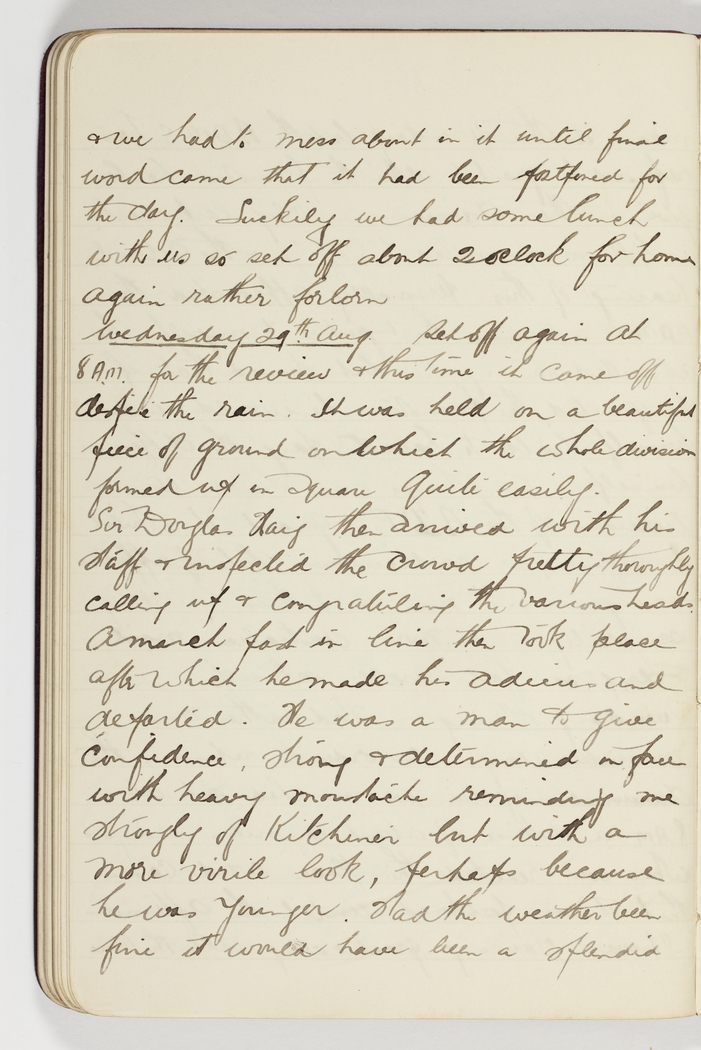 & we had to mess about in it until final
word came that it had been postponed for
the day. Luckily we had some lunch
with us so set off about 2 oclock for home
again rather forlorn
Wednesday 29th Aug. Set off again at
8 A.M. for the review & this time it came off
despite the rain. It was held on a beautiful
piece of ground on which the whole division
formed up in square quite easily.
Sir Douglas Haig then arrived with his
staff & inspected the crowd pretty thoroughly
calling up & congratuling the various heads.
A march past in line then took place
after which he made his adieus and
departed. He was a man to give
confidence, strong & determined in face
with heavy moustache reminding me
strongly of Kitchener but with a
more virile look, perhaps because
he was younger. Had the weather been
fine it would have been a splendid